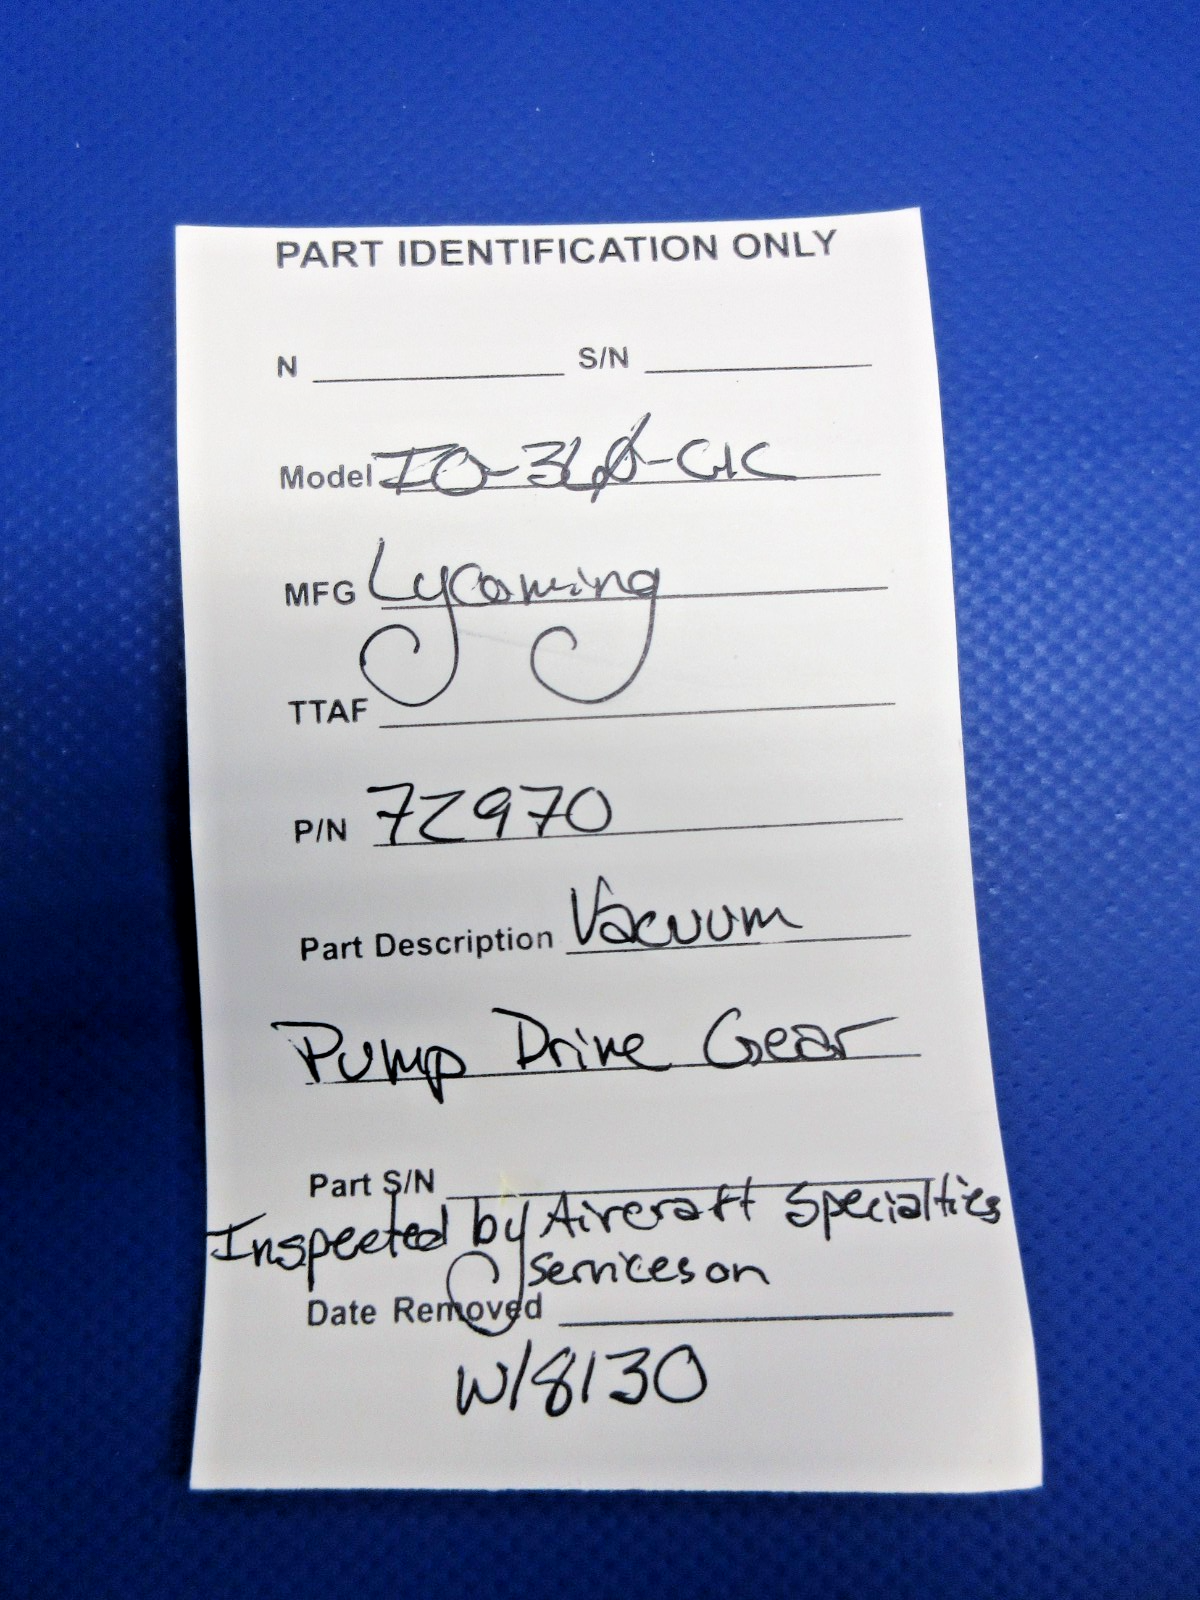 PART IDENTIFICATION ONLY
N S/N
Model IO-360-C1C
MFG Lycoming
TTAF
P/N 72970
Part Description Vacuum
Pump Drive Gear
Part S/N
Inspected by Aircraft Specialties
Services on
Date Removed
W/8130